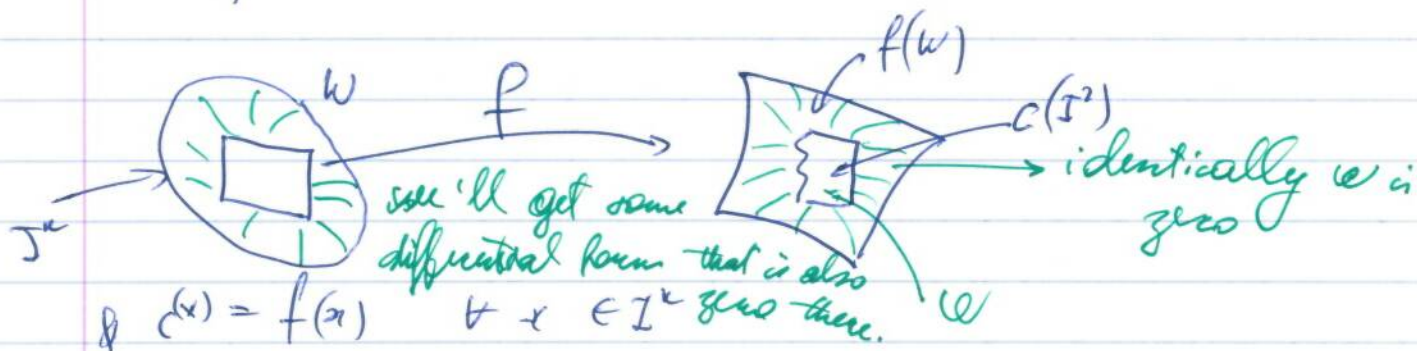 W
f
f(W)
c(I²)
identically ω is
zero
we'll get some
differential form that is also
zero there.
Iᵏ
ω
& c(x) = f(x) ∀ x ∈ Iᵏ